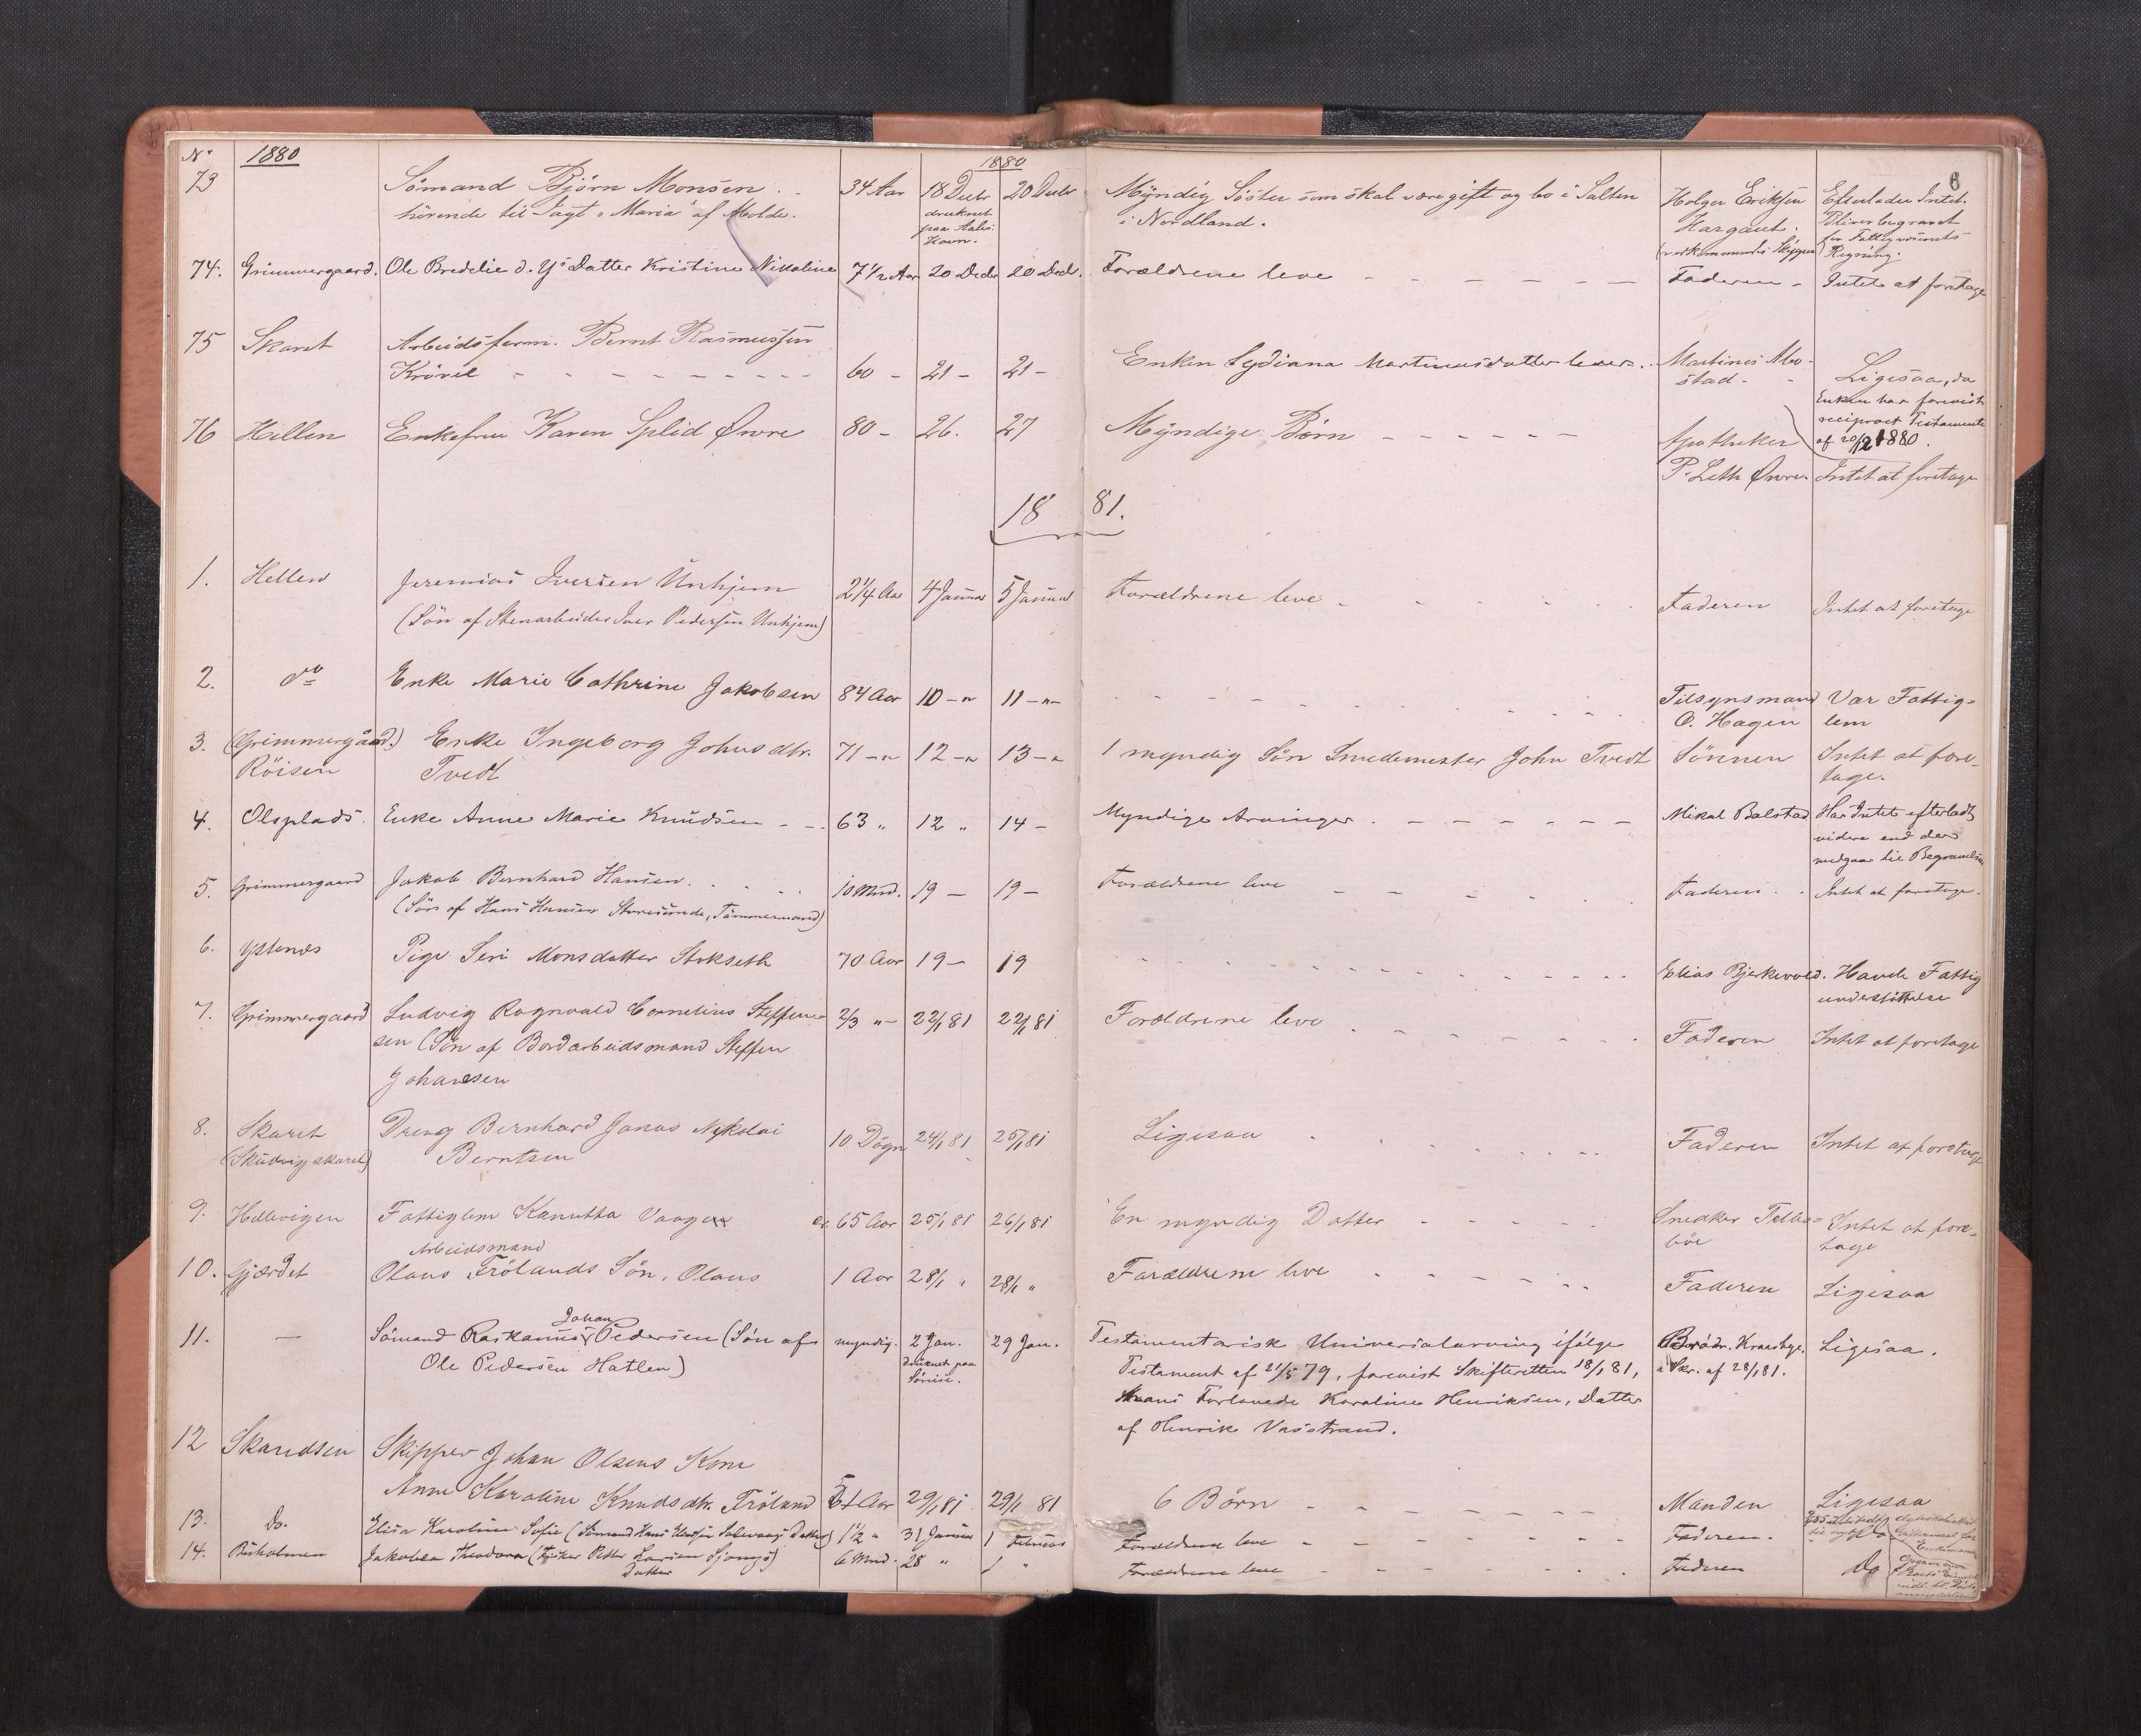 No 1880 1880 6
73 Sömand Björn Monsen 34 Aar 18 Decbr 20 Decbr Myndig Söster som skal være gift og bo i Salten Holger Eriksen Efterlader Intet.
hörende til Jagt "Maria" af Molde. druknet paa Aales. Havn. i Nordland. Bliver begravet
for Fattigvæsenets
(vedkommendes Skipper) Regning.
74. Grimmergaard. Ole Bredelie d. Ys Datter Kristine Nikoline 7 1/2 Aar 20 Decbr 20 Decbr. Forældrene leve - - - - - - Faderen - Intet at foretage
75 Skaret Arbeidsform. Bernt Rasmussen
Krövel - - - - - - - - - 60 - 21 - 21 - Enken Lydiana Martinusdatter lever. Martinus Mo-
stad - Ligesaa, da
Enken har forevist
reciproct Testamente
af 20/12 1880.
76 Hellen Enkefru Karen Splid Øwre 80 - 26. 27 Myndige Börn - - - - - - Apotheker
P. Leth Øwre. Intet at foretage
18 81.
1. Hellen Jeremias Iversen Unhjem 2 1/4 Aar 4 Januar 5 Januar Forældrene leve - Faderen Intet at foretage
(Sön af Stenarbeider Iver Pedersen Unhjem)
2. do Enke Marie Cathrine Jakobsen 84 Aar 10 - " 11 - " - Tilsynsmand Var Fattig=
O. Hagen lem
3. (Grimmergaard.) Enke Ingeborg Johnsdtr. 71 - " 12 - " 13 - " 1 myndig Sön Smedemester John Tvedt Sönnen Intet at fore-
Röisen Tvedt tage.
4. Olsplads. Enke Anne Marie Knudsen - - 63 " 12 " 14 - Myndige Arvinger. - - - - - - Mikal Balstad Har Intet efterladt
videre end der
medgaar til Begravelse
5. Grimmergaard Jakob Bernhard Hansen. 10 Mnd. 19 - 19 - Forældrene leve - - - Faderen. Intet at foretage.
(Sön af Hans Hansen Storesunde, Tömmermand)
6. Ystenæs Pige Seri Monsdatter Stokseth 70 Aar 19 - 19 Elias Bjerkevold. Havde Fattig
understöttelse
7. Grimmergaard Ludvig Ragnvald Cornelius Steffen- 2/3 " - 22/1 81 22/1 81 Forældrene leve Faderen Intet at foretage
sen (Sön af Bordarbeidsmand Steffen
Johansen
8. Skaret Dreng Bernhard Jonas Nikolai 10 Dögn 24/1 81 25/1 81 Ligesaa Faderen Intet at foretage
(Skudvigskaret) Berntsen
9. Hellevigen Fattiglem Kanutta Vaagen 65 Aar 25/1 81 26/1 81 En myndig Datter - - - - - Snedker Intet at fore-
tage
Arbeidsmand
10. Gjærdet Olaus Frölands Sön, Olaus 1 Aar 28/1 " 28/1 " Forældrene leve Faderen Ligesaa
Johan
11. - Sömand Pedersen (Sön af myndig. 2 Jan. 29 Jan. Testamentarisk Universalarving ifölge Brödr. i Ligesaa.
Ole Pedersen Hatlen) druknet paa Söreise. Testament af 21/5 79, forevist Skifteretten 18/1 81, Skr. af 28/1 81.
hans Forlovede Karoline Henriksen, Datter
af Henrik Vasstrand.
12 Skandsen Skipper Johan Olsens Kone
Anne Karoline Knudsdtr. Fröland 51 Aar 29/1 81. 29/1 81 6 Börn - - - - - - Manden Ligesaa
13. Do. Elisa Karoline Sofie (Sömand Hans Datter) 1 1/2 " 31 Januar 1 Februar Forældrene leve - - - - - Faderen.
14. Buholmen Jakobea Theodora (Fisker Petter Larsen 6 Mnd. 28 " 1 " Forældrene leve - - - - - Faderen Do
Datter